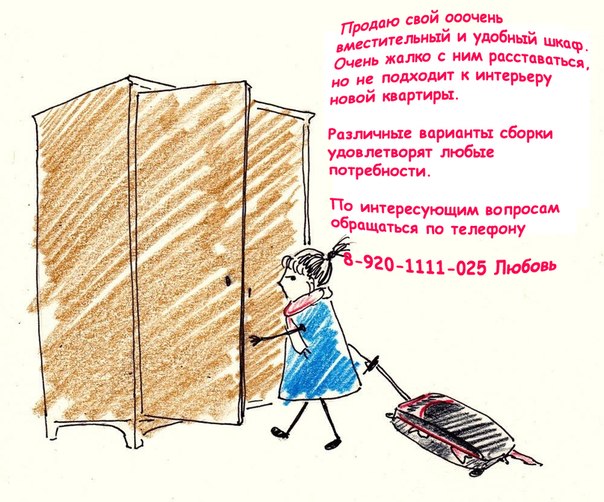 Продаю свой ооочень
вместительный и удобный шкаф.
Очень жалко с ним расставаться,
но не подходит к интерьеру
новой квартиры.
Различные варианты сборки
удовлетворят любые
потребности.
По интересующим вопросам
обращаться по телефону
8-920-1111-025 Любовь